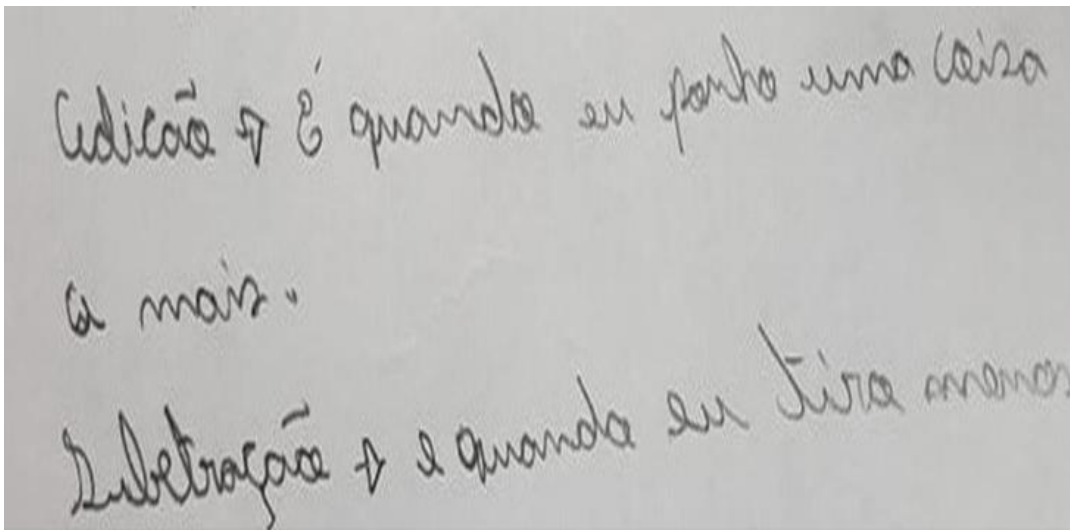 Adicão → É quando eu ponho uma coisa
a mais.
Subtração → e quando eu tiro menos